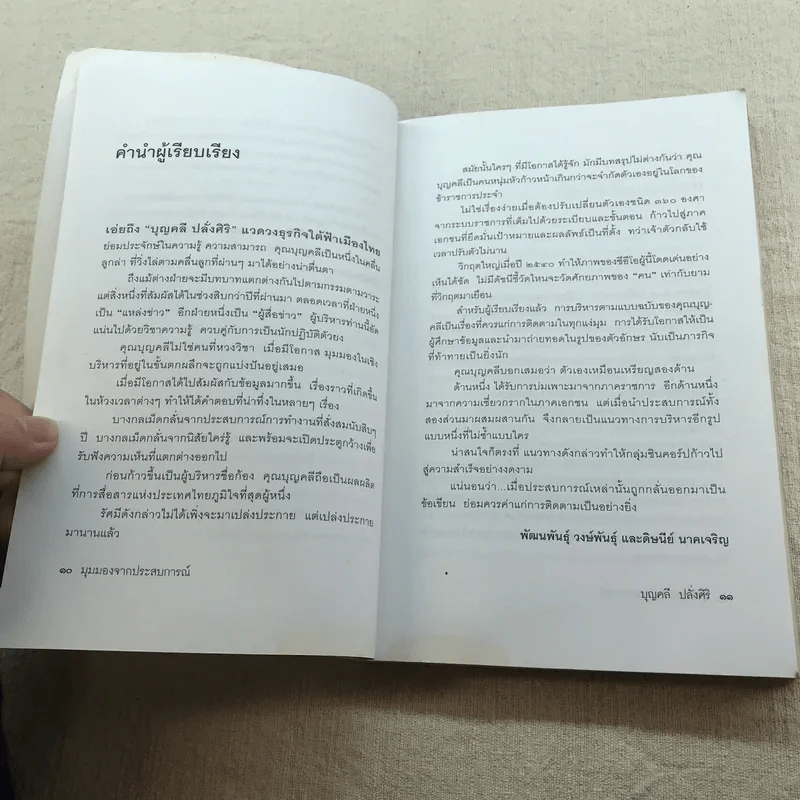 คำนำผู้เรียบเรียง
เอ่ยถึง “บุญคลี ปลั่งศิริ” แวดวงธุรกิจใต้ฟ้าเมืองไทย
ย่อมประจักษ์ในความรู้ ความสามารถ คุณบุญคลีเป็นหนึ่งในคลื่น
ลูกล่า ที่วิ่งไล่ตามคลื่นลูกที่ผ่านๆ มาได้อย่างน่าตื่นตา
ถึงแม้ต่างฝ่ายจะมีบทบาทแตกต่างกันไปตามกรรมตามวาระ
แต่สิ่งหนึ่งที่สัมผัสได้ในช่วงสิบกว่าปีที่ผ่านมา ตลอดเวลาที่ฝ่ายหนึ่ง
เป็น “แหล่งข่าว” อีกฝ่ายหนึ่งเป็น “ผู้สื่อข่าว” ผู้บริหารท่านนี้อัด
แน่นไปด้วยวิชาความรู้ ควบคู่กับการเป็นนักปฏิบัติตัวยง
คุณบุญคลีไม่ใช่คนที่หวงวิชา เมื่อมีโอกาส มุมมองในเชิง
บริหารที่อยู่ในขั้นตกผลึกจะถูกแบ่งปันอยู่เสมอ
เมื่อมีโอกาสได้ไปสัมผัสกับข้อมูลมากขึ้น เรื่องราวที่เกิดขึ้น
ในห้วงเวลาต่างๆ ทำให้ได้คำตอบที่น่าทึ่งในหลายๆ เรื่อง
บางกลเม็ดกลั่นจากประสบการณ์การทำงานที่สั่งสมนับสิบๆ
ปี บางกลเม็ดกลั่นจากนิสัยใคร่รู้ และพร้อมจะเปิดประตูกว้างเพื่อ
รับฟังความเห็นที่แตกต่างออกไป
ก่อนก้าวขึ้นเป็นผู้บริหารชื่อก้อง คุณบุญคลีถือเป็นผลผลิต
ที่การสื่อสารแห่งประเทศไทยภูมิใจที่สุดผู้หนึ่ง
รัศมีดังกล่าวไม่ได้เพิ่งจะมาเปล่งประกาย แต่เปล่งประกาย
มานานแล้ว
๑๐ มุมมองจากประสบการณ์
สมัยนั้นใครๆ ที่มีโอกาสได้รู้จัก มักมีบทสรุปไม่ต่างกันว่า คุณ
บุญคลีเป็นคนหนุ่มหัวก้าวหน้าเกินกว่าจะจำกัดตัวเองอยู่ในโลกของ
ข้าราชการประจำ
ไม่ใช่เรื่องง่ายเมื่อต้องปรับเปลี่ยนตัวเองชนิด ๓๖๐ องศา
จากระบบราชการที่เต็มไปด้วยระเบียบและขั้นตอน ก้าวไปสู่ภาค
เอกชนที่ยึดมั่นเป้าหมายและผลลัพธ์เป็นที่ตั้ง ทว่าเจ้าตัวกลับใช้
เวลาปรับตัวไม่นาน
วิกฤตใหญ่เมื่อปี ๒๕๔๐ ทำให้ภาพของซีอีโอผู้นี้โดดเด่นอย่าง
เห็นได้ชัด ไม่มีดัชนีชี้วัดไหนจะวัดศักยภาพของ “คน” เท่ากับยาม
ที่วิกฤตมาเยือน
สำหรับผู้เรียบเรียงแล้ว การบริหารตามแบบฉบับของคุณบุญ-
คลีเป็นเรื่องที่ควรแก่การติดตามในทุกแง่มุม การได้รับโอกาสให้เป็น
ผู้ศึกษาข้อมูลและนำมาถ่ายทอดในรูปของตัวอักษร นับเป็นภารกิจ
ที่ท้าทายเป็นยิ่งนัก
คุณบุญคลีบอกเสมอว่า ตัวเองเหมือนเหรียญสองด้าน
ด้านหนึ่ง ได้รับการบ่มเพาะมาจากภาคราชการ อีกด้านหนึ่ง
มาจากความเชี่ยวกรากในภาคเอกชน แต่เมื่อนำประสบการณ์ทั้ง
สองส่วนมาผสมผสานกัน จึงกลายเป็นแนวทางการบริหารอีกรูป
แบบหนึ่งที่ไม่ซ้ำแบบใคร
น่าสนใจก็ตรงที่ แนวทางดังกล่าวทำให้กลุ่มชินคอร์ปก้าวไป
สู่ความสำเร็จอย่างงดงาม
แน่นอนว่า...เมื่อประสบการณ์เหล่านั้นถูกกลั่นออกมาเป็น
ข้อเขียน ย่อมควรค่าแก่การติดตามเป็นอย่างยิ่ง
พัฒนพันธุ์ วงษ์พันธุ์ และดิษนีย์ นาคเจริญ
บุญคลี ปลั่งศิริ ๑๑